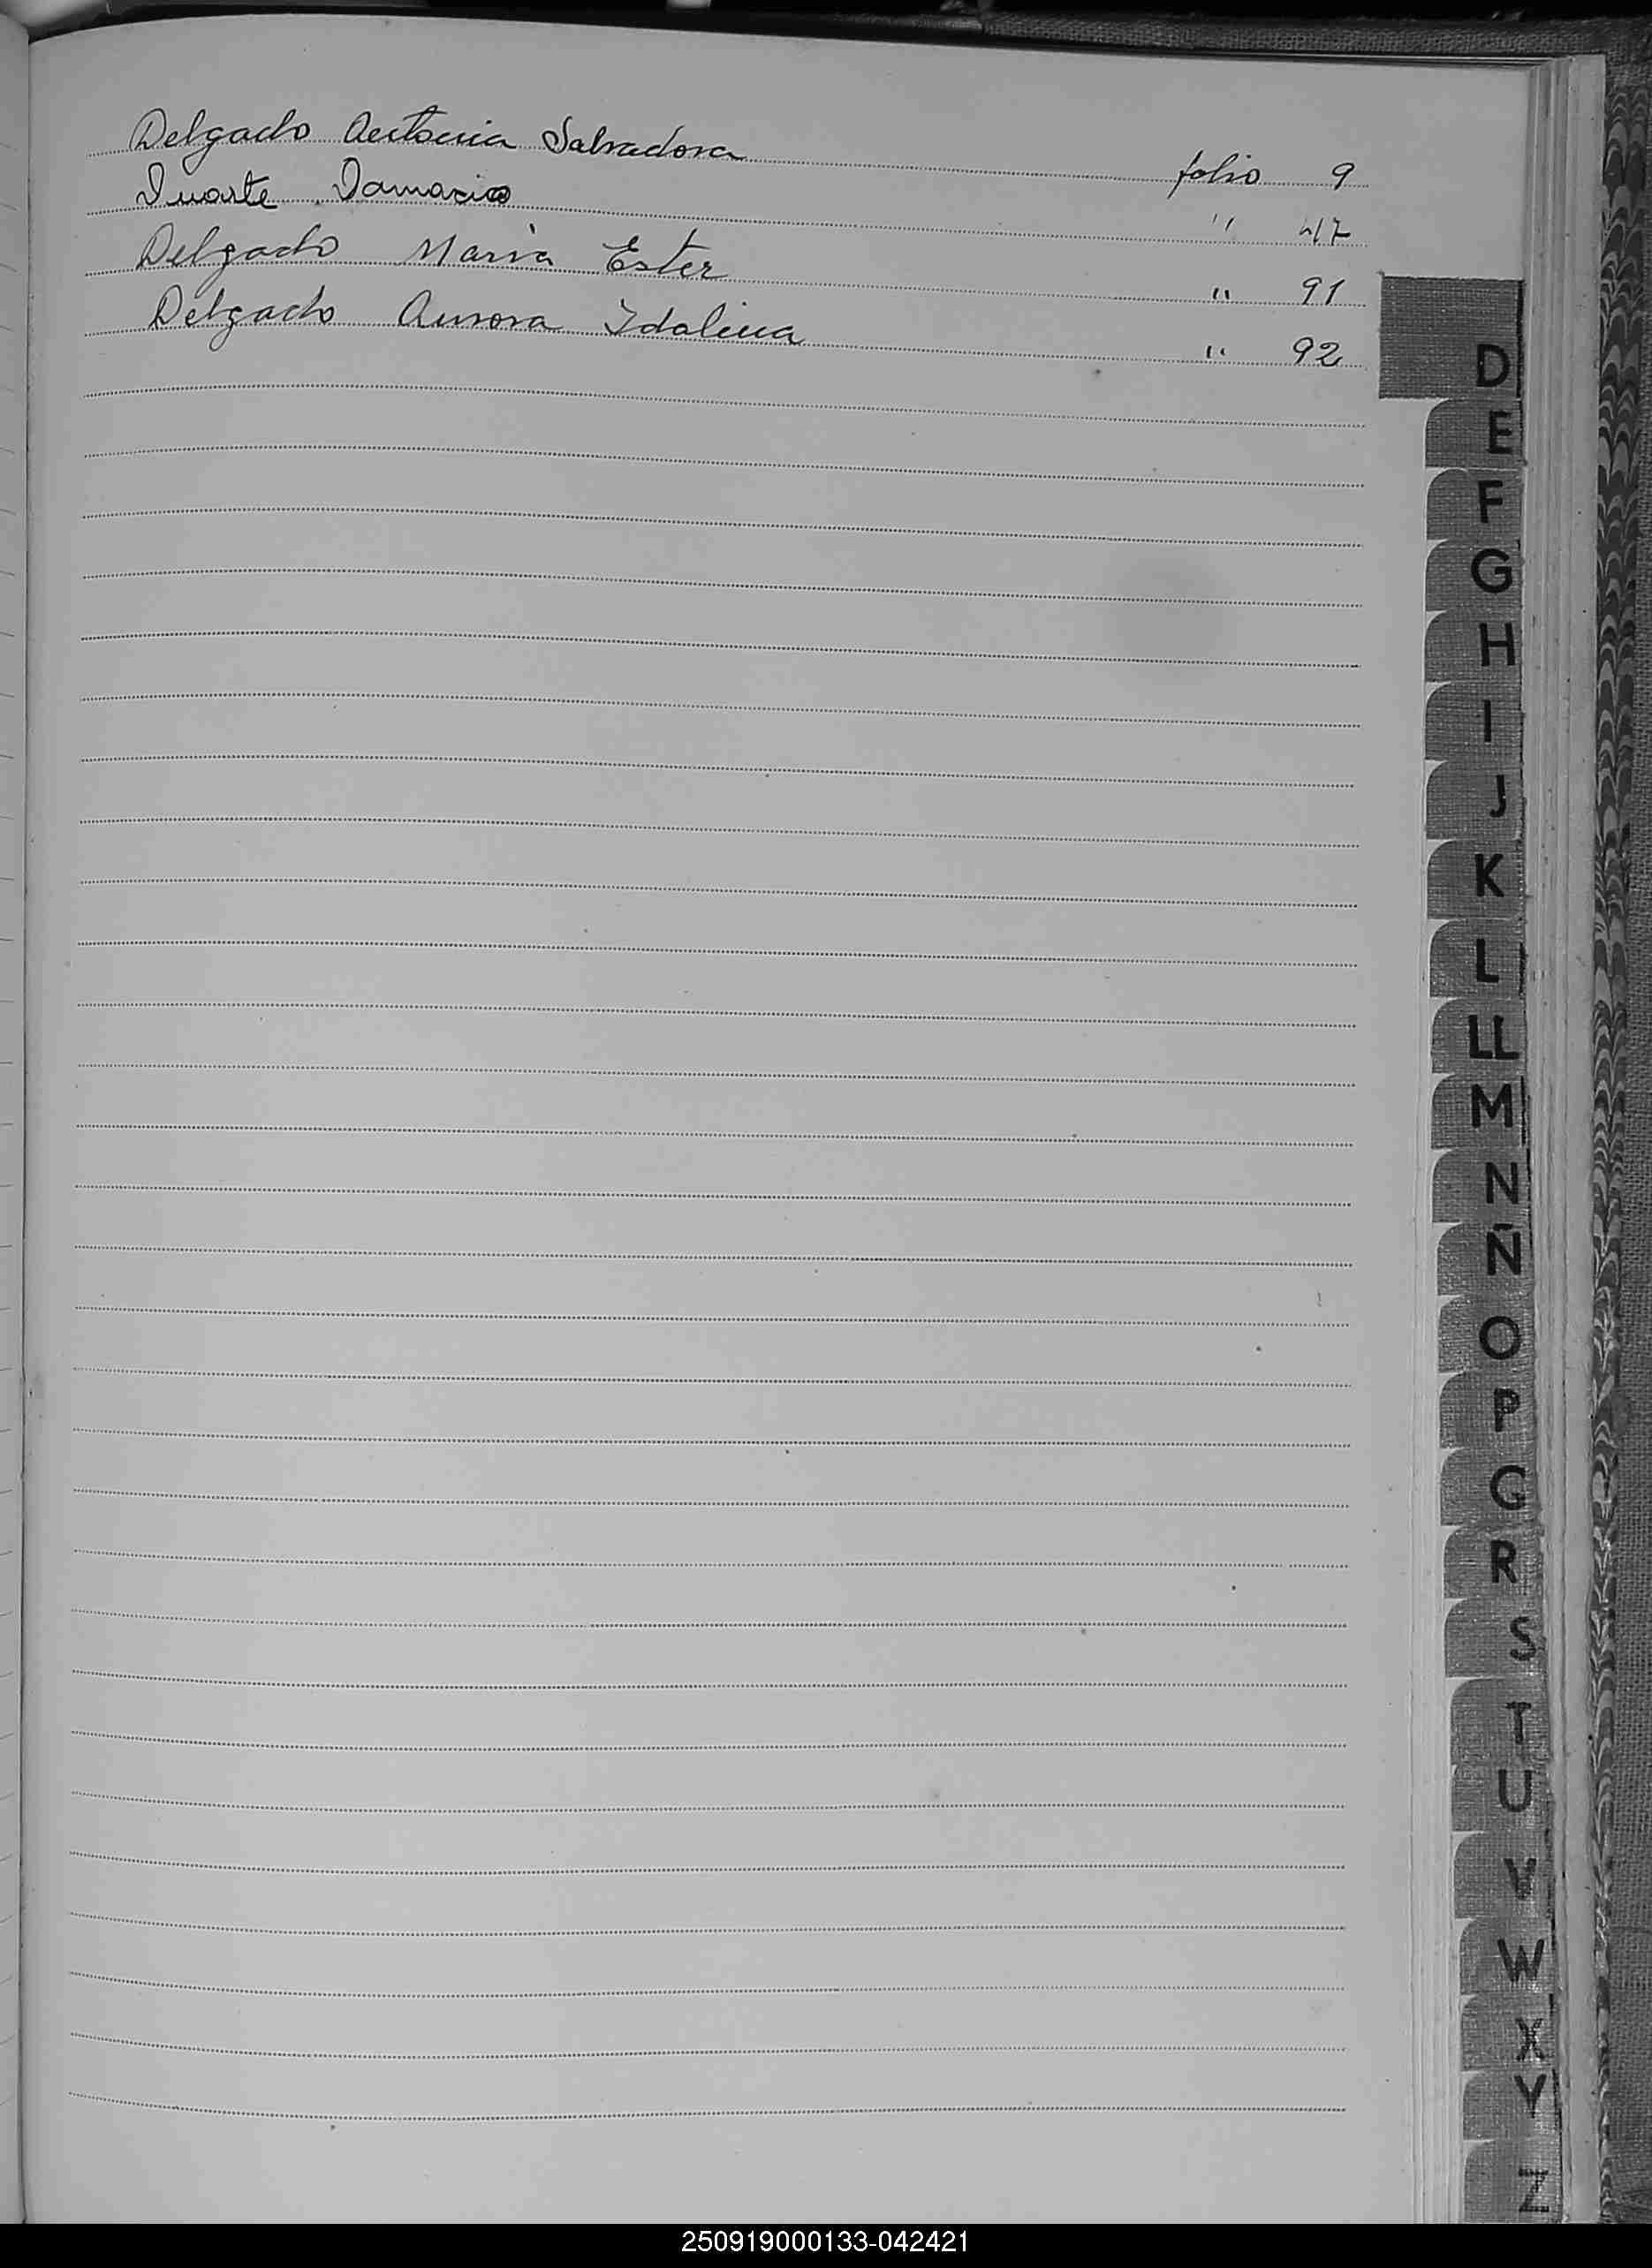 Delgado Antonia Salvadora folio 9
Duarte Damacio " 47
Delgado Maria Ester " 91
Delgado Aurora Idalina " 92
D
E
F
G
H
I
J
K
L
LL
M
N
Ñ
O
P
Q
R
S
T
U
V
W
X
Y
Z
250919000133-042421